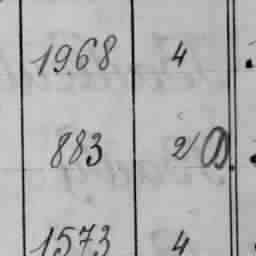 1968 4
883 2
1573 4